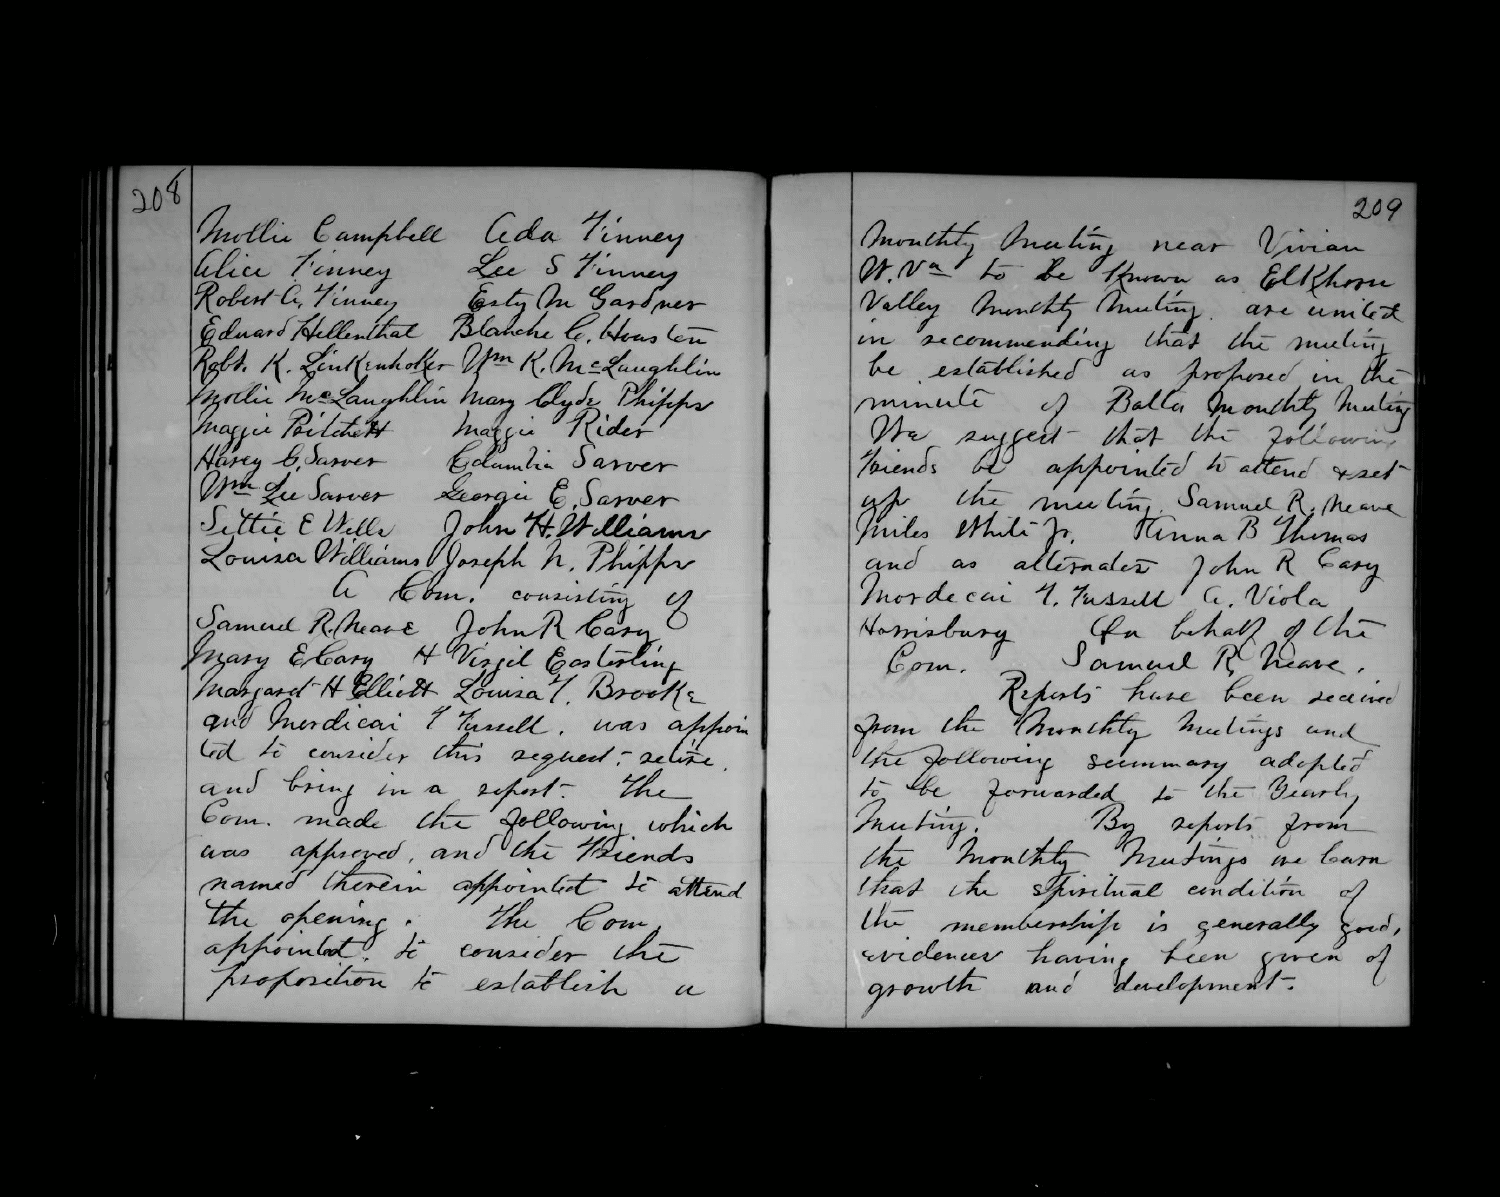 208
Mollie Campbell Ada Finney
Alice Finney Lee S Finney
Robert A. Finney Esty M Gardner
Edward Hellenthal Blanche C. Houston
Robt. K. Linkenhoker Wm K. McLaughlin
Mollie McLaughlin Mary Clyde Phipps
Maggie Pritchett Maggie Rider
Harvy C. Sarver Columbia Sarver
Wm Lee Sarver Georgie E. Sarver
Settie E Wells John H. Williams
Louisa Williams Joseph N. Phipps
A Com. consisting of
Samuel R. Neave John R Cary
Mary E Cary H Virgil Easterling
Margaret H Elliott Louisa T. Brooke
and Mordicai T Fussell. was appoin
ted to consider this request - retire.
and bring in a report. The
Com. made the following which
was approved, and the Friends
named therein appointed to attend
the opening. The Com.
appointed to consider the
proposition to establish a
209
Monthly Meeting near Vivian
W. Va to be Known as ElKhorn
Valley Monthly Meeting. are united
in recommending that the meeting
be established as proposed in the
minute of Balto Monthly Meeting
We suggest that the following
Friends be appointed to attend & set
up the meeting. Samuel R. Neave
Miles White Jr. Anna B Thomas
and as alternates John R Cary
Mordecai T. Fussell A. Viola
Harrisburg On behalf of the
Com. Samuel R, Neave.
Reports have been received
from the Monthly Meetings and
the following summary adopted
to be forwarded to the Yearly
Meeting. By reports from
the Monthly Meetings we learn
that the spiritual condition of
the membership is generally good,
evidences having been given of
growth and development.